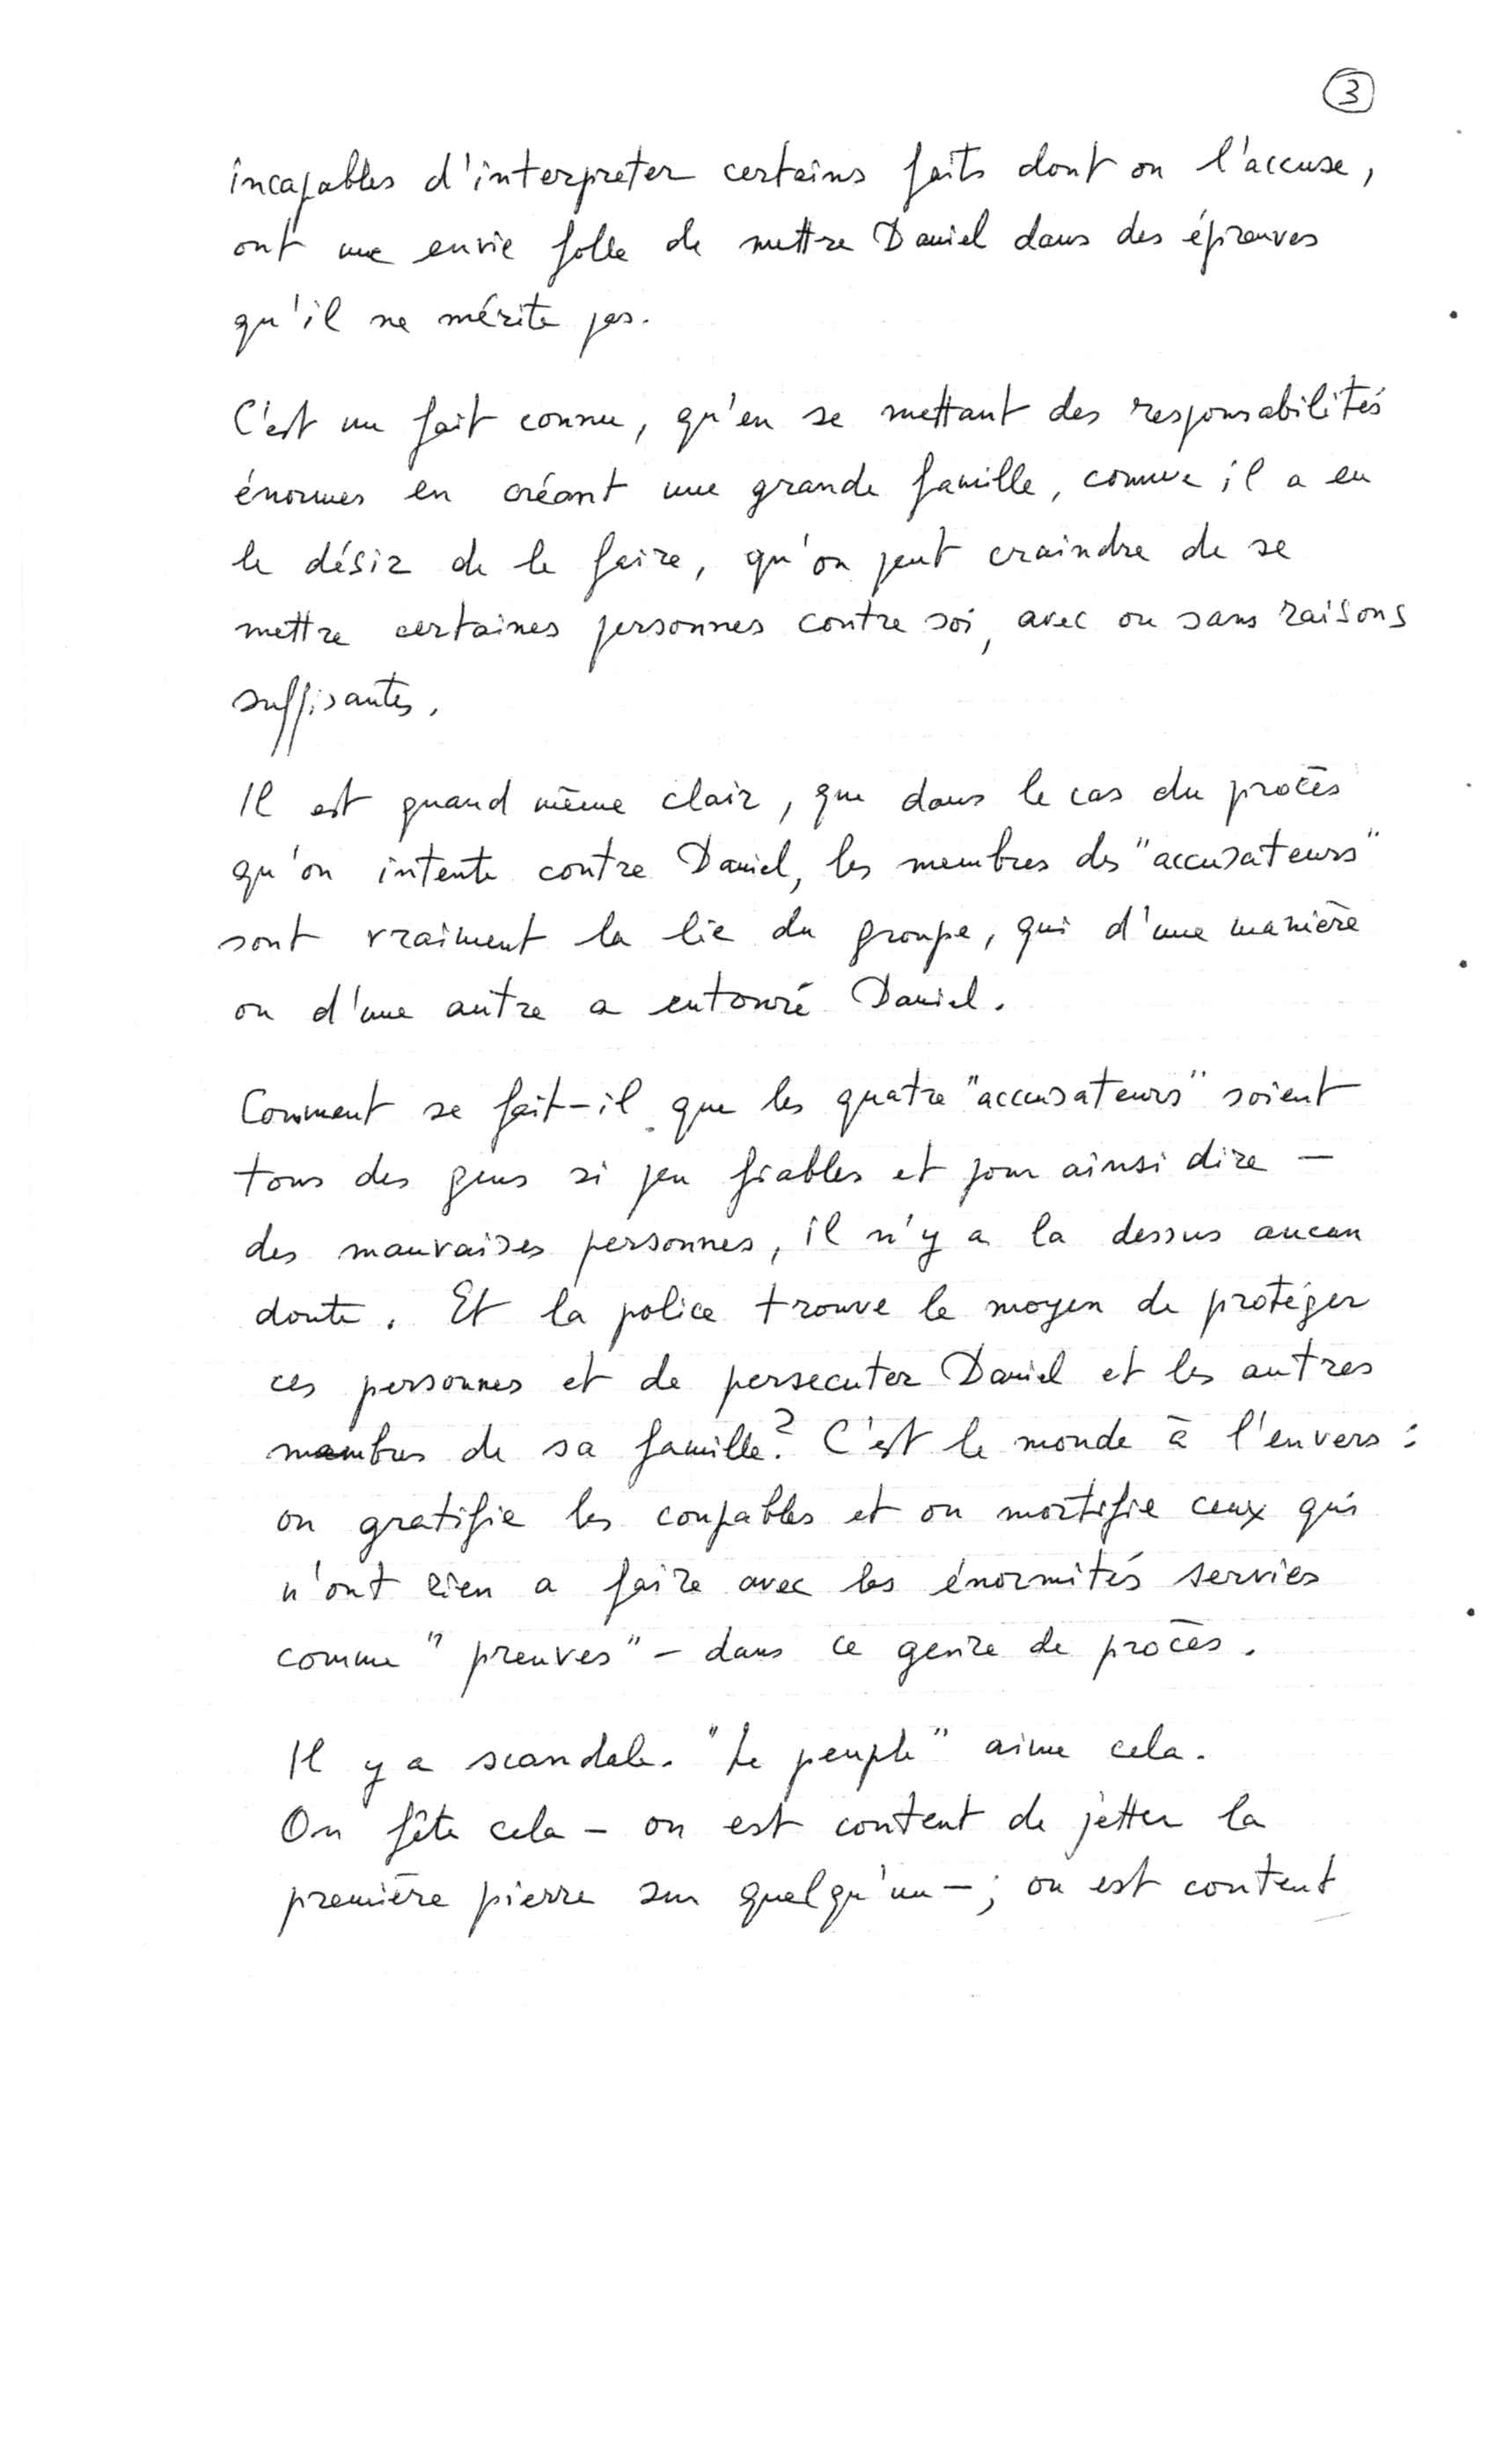 3
incapables d'interpreter certains faits dont on l'accuse,
ont une envie folle de mettre Daniel dans des épreuves
qu'il ne mérite pas.
C'est un fait connu, qu'en se mettant des responsabilités
énormes en créant une grande famille, comme il a eu
le désir de le faire, qu'on peut craindre de se
mettre certaines personnes contre soi, avec ou sans raisons
suffisantes.
Il est quand même clair, que dans le cas du procès
qu'on intente contre Daniel, les membres des "accusateurs"
sont vraiment la lie du groupe, qui d'une manière
ou d'une autre a entouré Daniel.
Comment se fait-il que les quatre "accusateurs" soient
tous des gens si peu fiables et pour ainsi dire —
des mauvaises personnes, il n'y a la dessus aucun
doute. Et la police trouve le moyen de protéger
ces personnes et de persecuter Daniel et les autres
membres de sa famille? C'est le monde à l'envers :
on gratifie les coupables et on mortifie ceux qui
n'ont rien a faire avec les énormités servies
comme "preuves" – dans ce genre de procès.
Il y a scandale. "Le peuple" aime cela.
On fête cela – on est content de jetter la
première pierre sur quelqu'un – ; on est content